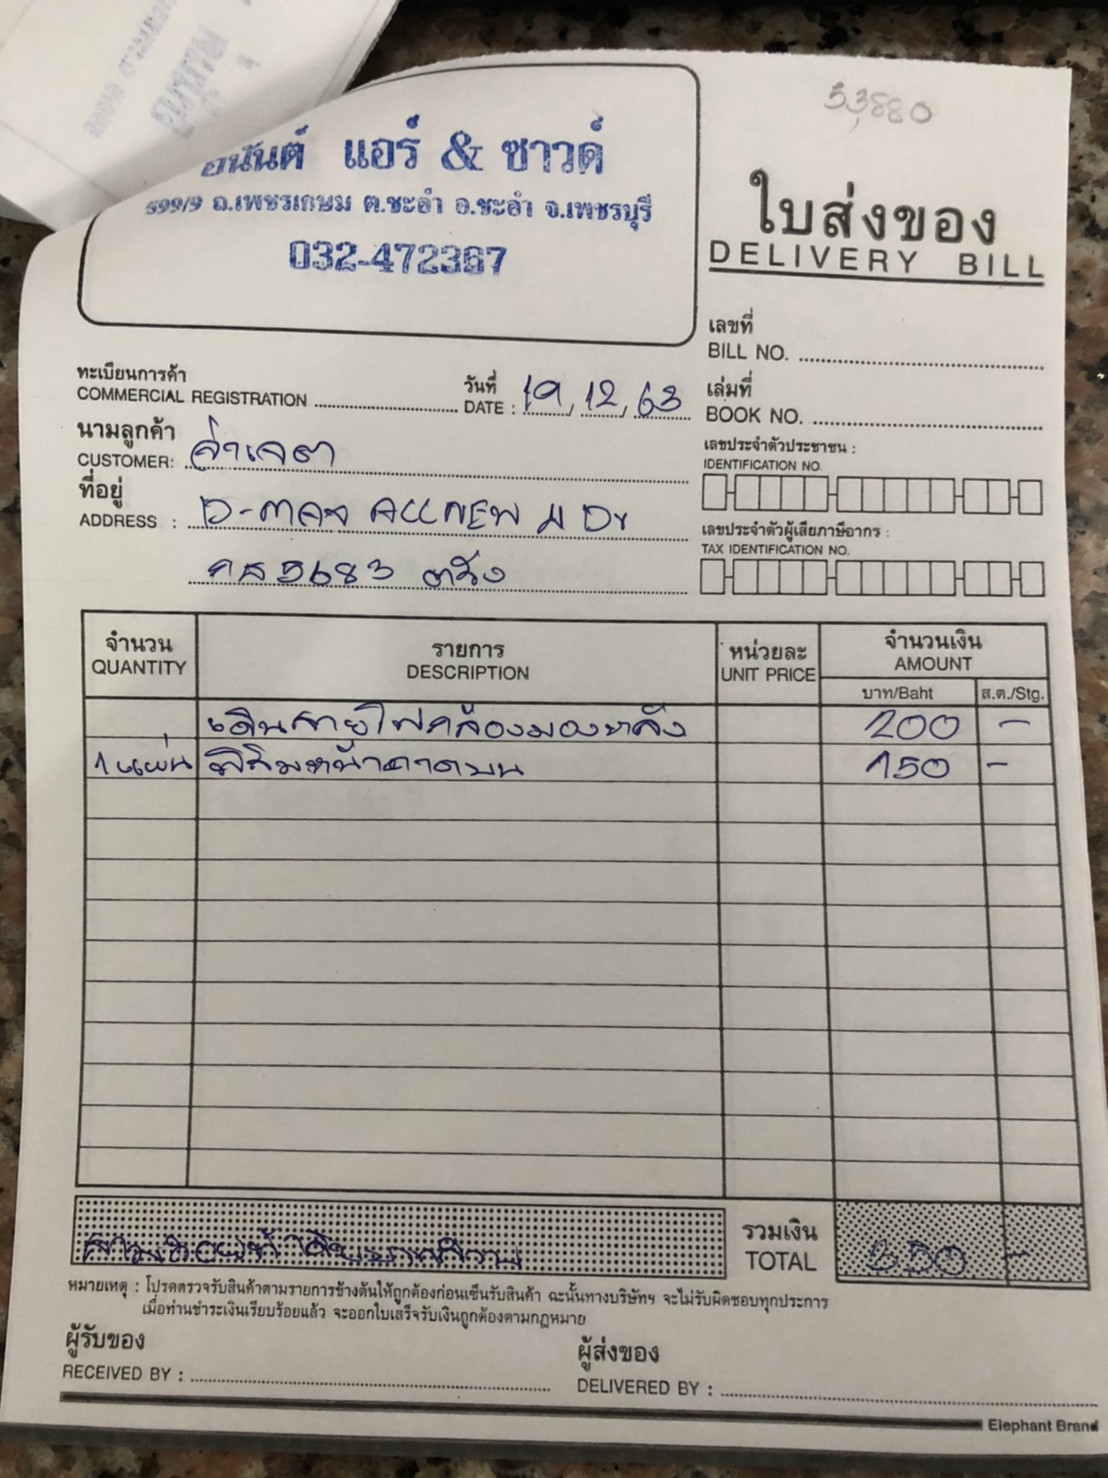 53,880
อนันต์ แอร์ & ซาวด์
599/9 ถ.เพชรเกษม ต.ชะอำ อ.ชะอำ จ.เพชรบุรี
032-472367
ใบส่งของ
DELIVERY BILL
เลขที่
BILL NO.
ทะเบียนการค้า
COMMERCIAL REGISTRATION
วันที่
DATE : 19, 12, 63
เล่มที่
BOOK NO.
นามลูกค้า
CUSTOMER: จ่าเจตา
เลขประจำตัวประชาชน :
IDENTIFICATION NO.
ที่อยู่
ADDRESS : D-max ALLNEW 4 Dr
5683 ตรัง
เลขประจำตัวผู้เสียภาษีอากร :
TAX IDENTIFICATION NO.
จำนวน
QUANTITY
รายการ
DESCRIPTION
หน่วยละ
UNIT PRICE
จำนวนเงิน
AMOUNT
บาท/Baht ส.ต./Stg.
เดินสายไฟกล้องมองหลัง 200 -
1 แผ่น ฟิล์มหน้าคาดบน 150 -
สามร้อยห้าสิบบาทถ้วน
รวมเงิน
TOTAL 350 -
หมายเหตุ : โปรดตรวจรับสินค้าตามรายการข้างต้นให้ถูกต้องก่อนเซ็นรับสินค้า ฉะนั้นทางบริษัทฯ จะไม่รับผิดชอบทุกประการ
เมื่อท่านชำระเงินเรียบร้อยแล้ว จะออกใบเสร็จรับเงินถูกต้องตามกฎหมาย
ผู้รับของ
RECEIVED BY :
ผู้ส่งของ
DELIVERED BY :
Elephant Brand